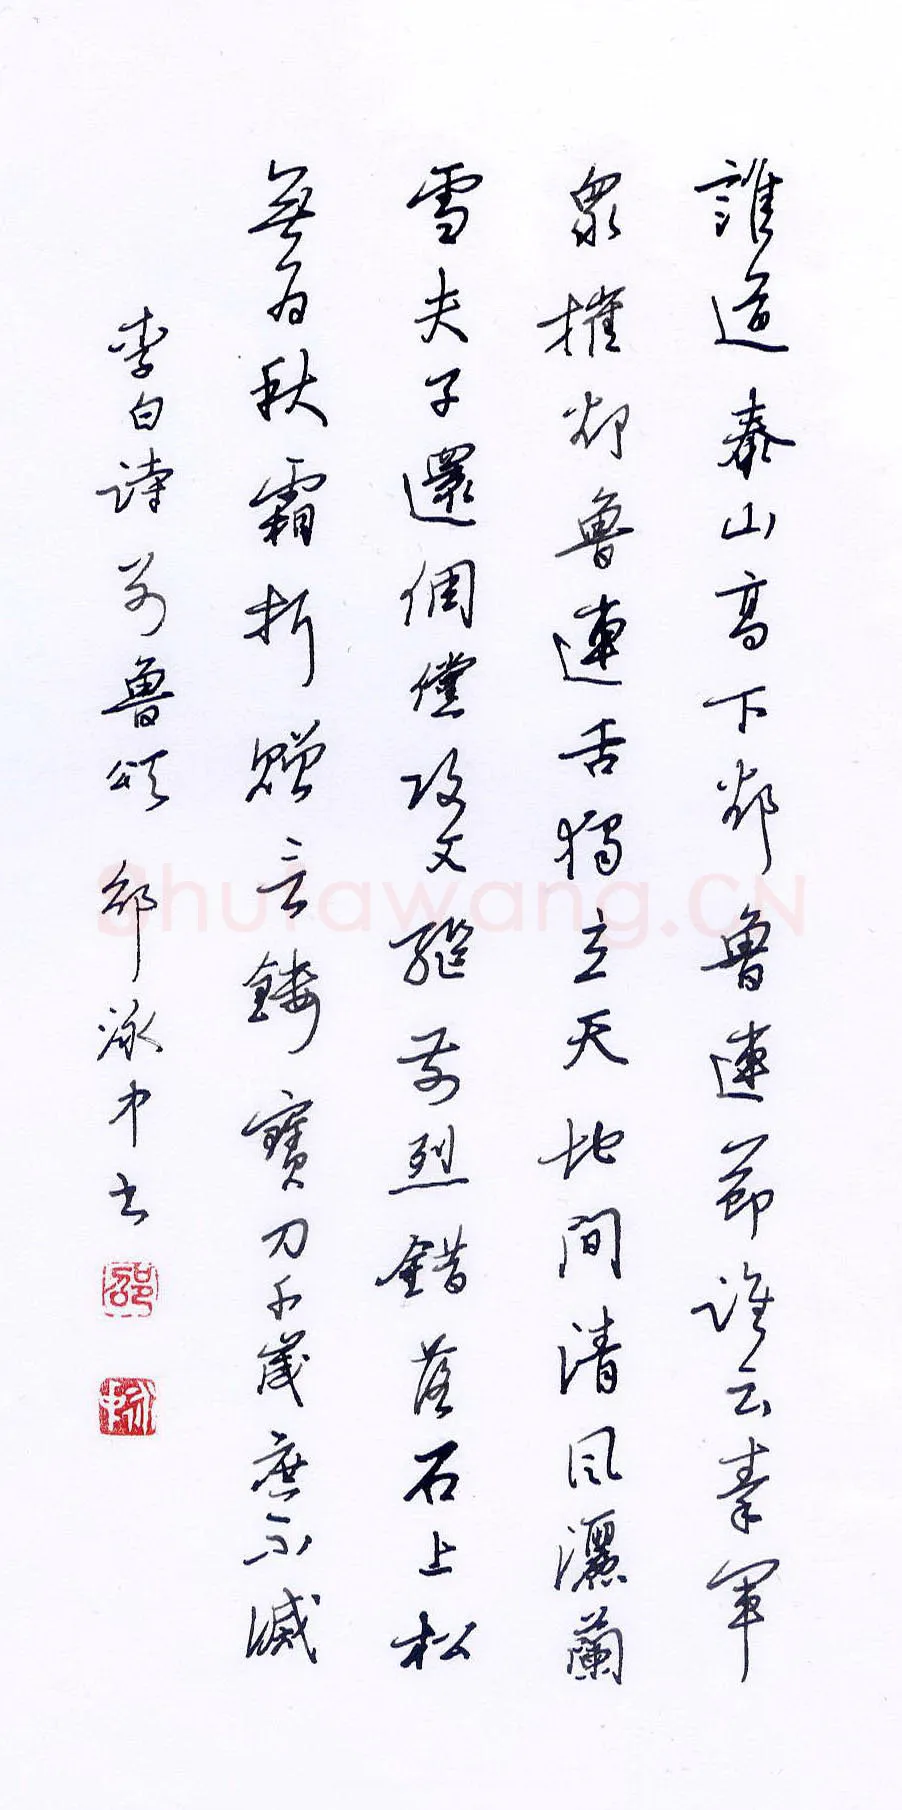 誰道泰山高下卻魯連節誰云秦軍
眾摧卻魯連舌獨立天地間清風灑蘭
雪夫子還倜儻攻文繼前烈錯落石上松
無為秋霜折贈言鏤寶刀千歲庶不滅
李白詩 別魯頌 邵泳中书
邵
泳中
Shufawang.CN